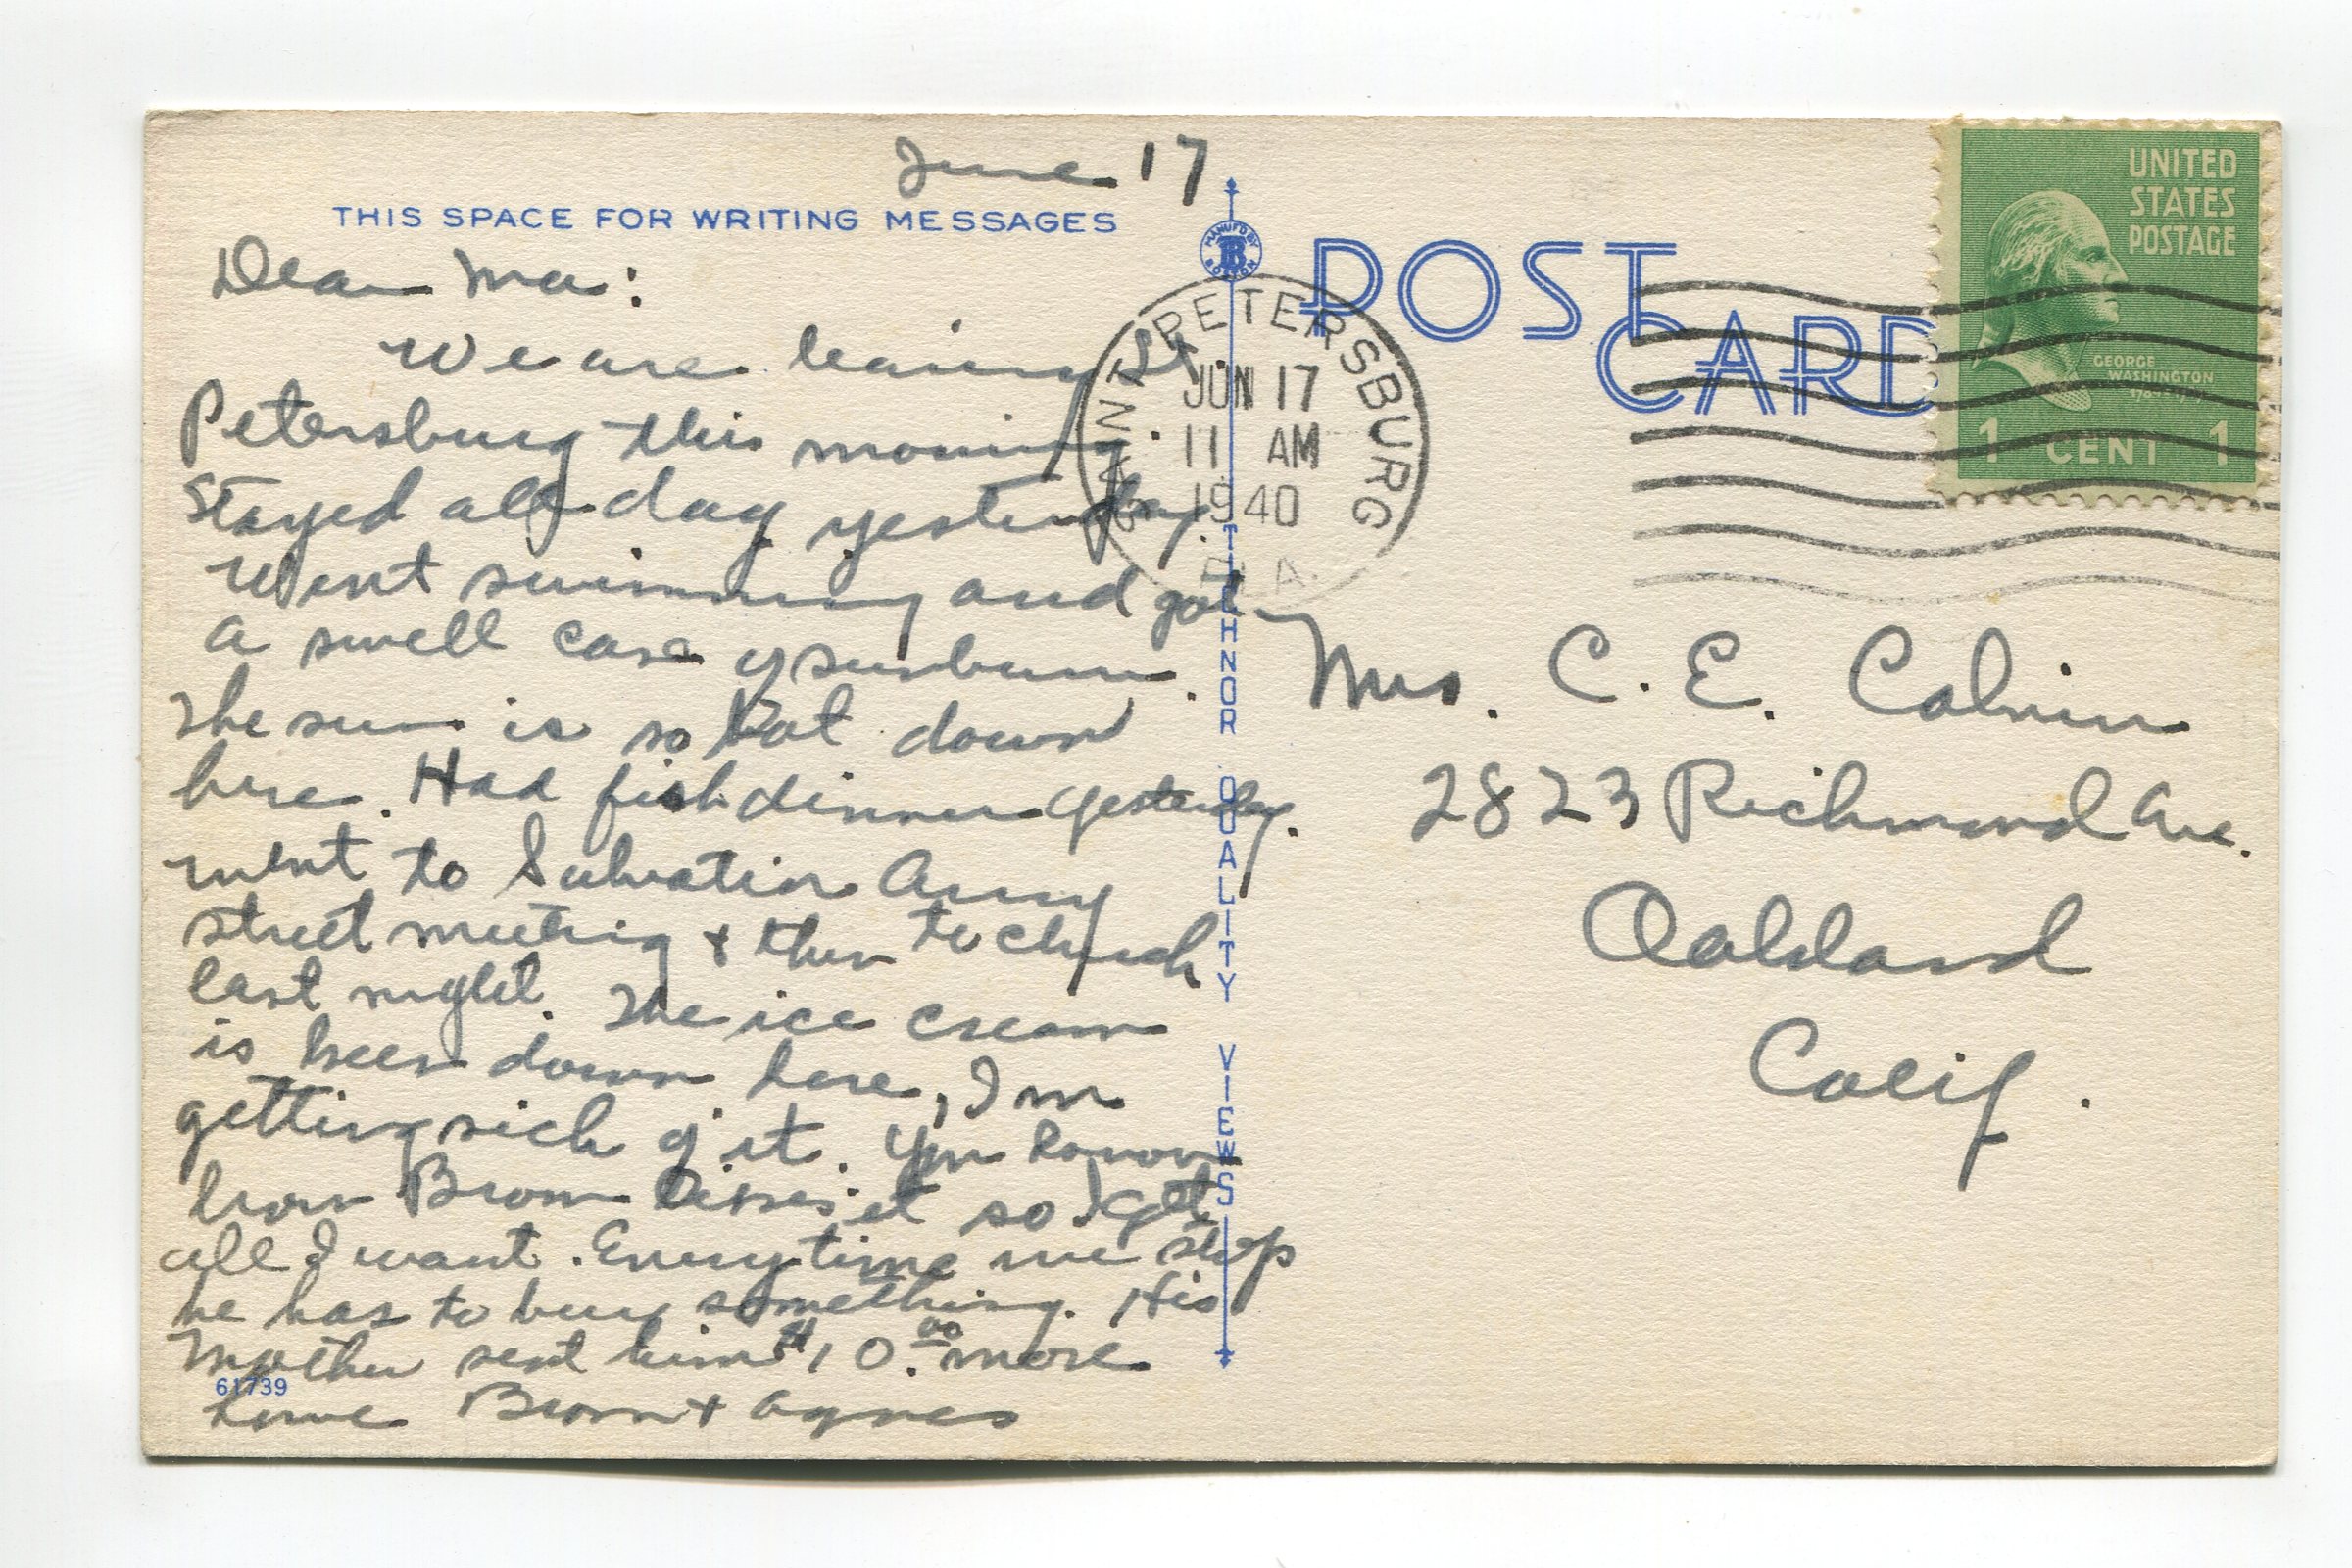 June 17
THIS SPACE FOR WRITING MESSAGES
Dear Ma:
We are leaving St.
Petersburg this morning.
Stayed all day yesterday.
Went swimming and got
a swell case of sunburn.
The sun is so hot down
here. Had fish dinner yesterday.
went to Salvation Army
street meeting & then to church
last night. The ice cream
is keen down here, Im
getting sick of it. You know
how Brom it so I get
all I want. Everytime we stop
he has to buy something. His
Mother sent him $10.00 more
61739
Love Brom + Agnes
MANUF'D BY
TB
BOSTON
TICHNOR QUALITY VIEWS
POST
CARD
SAINT PETERSBURG
JUN 17
11 AM
1940
FLA.
UNITED
STATES
POSTAGE
GEORGE
WASHINGTON
1 CENT 1
Mrs. C. E. Calvin
2823 Richmond Ave.
Oakland
Calif.